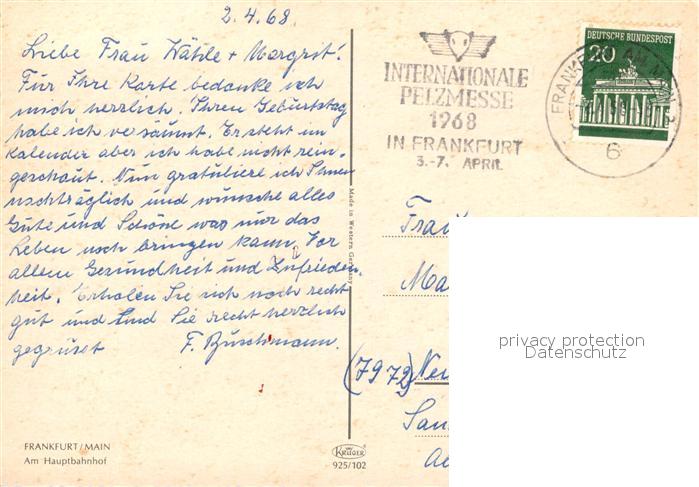 2.4.68.
Liebe Frau Wähle + Margrit!
Für Ihre Karte bedanke ich
mich herzlich. Ihren Geburtstag
habe ich versäumt. Er steht im
Kalender aber ich habe nicht rein-
geschaut. Nun gratuliere ich Ihnen
nachträglich und wünsche alles
Gute und Schöne was nur das
Leben noch bringen kann. Vor
allem Gesundheit und Zufrieden-
heit. Erholen Sie sich noch recht
gut und sind Sie recht herzlich
gegrüsst F. Buschmann.
FRANKFURT/MAIN
Am Hauptbahnhof
Made in Western Germany
KRÜGER
925/102
INTERNATIONALE
PELZMESSE
1968
IN FRANKFURT
3.-7. APRIL
DEUTSCHE BUNDESPOST
20
FRANKFURT AM MAIN
6
Frau
Ma
(7972) Neu
San
privacy protection
Datenschutz